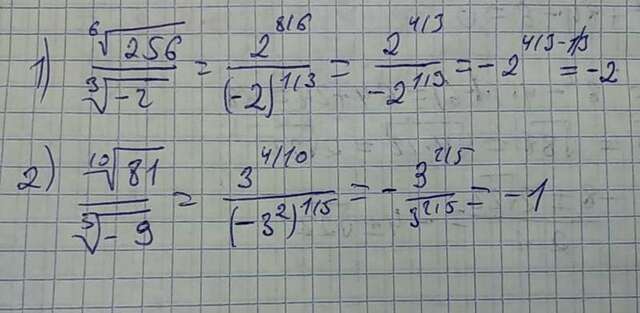 1) ⁶√256 / ³√-2 = 2^8/6 / (-2)^1/3 = 2^4/3 / -2^1/3 = -2^4/3-1/3 = -2
2) ¹⁰√81 / ⁵√-9 = 3^4/10 / (-3²)^1/5 = -3^2/5 / 3^2/5 = -1